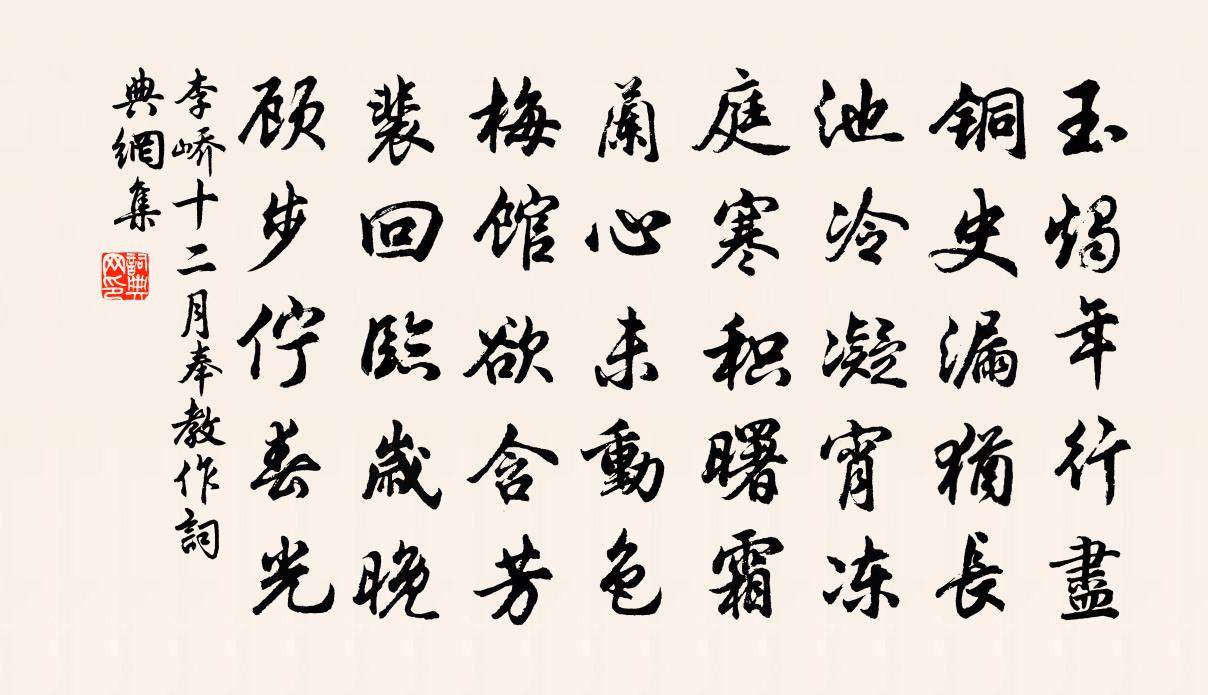 玉燭年行盡
銅史漏猶長
池冷凝宵冻
庭寒积曙霜
蘭心未動色
梅馆欲含芳
裴回臨歲晚
顾步佇春光
李嶠十二月奉教作詞
典網集
詞典网印